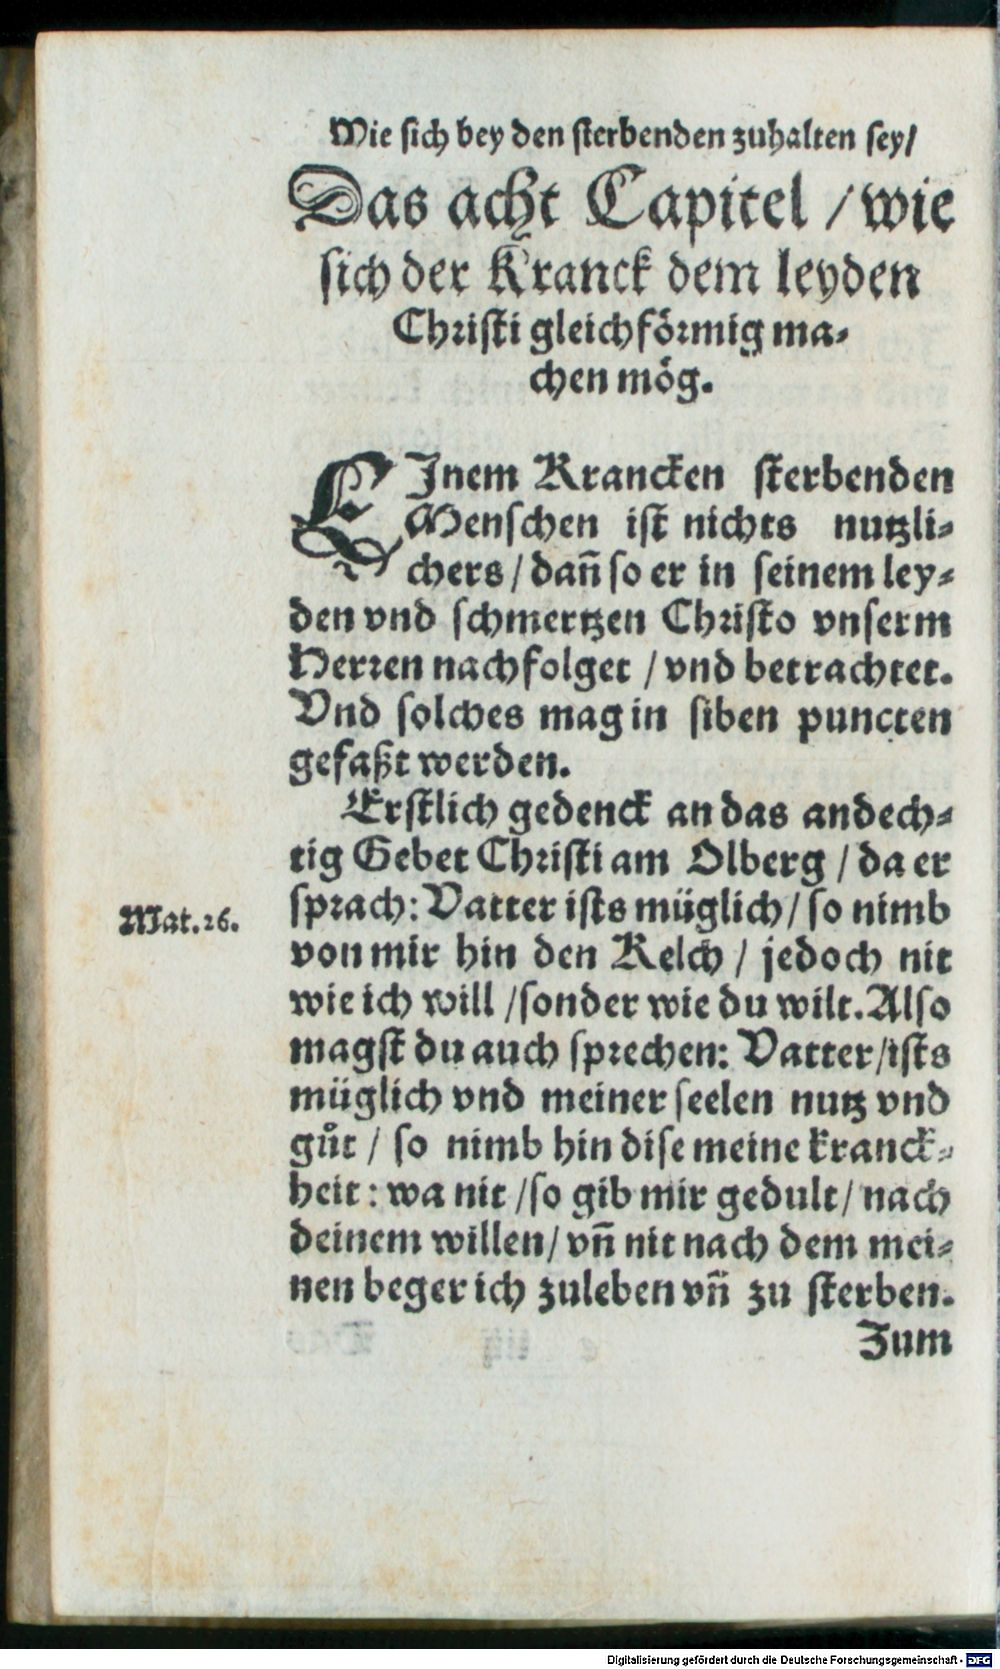 Wie sich bey den sterbenden zuhalten sey/
Das acht Capitel / wie
sich der Kranck dem leyden
Christi gleichförmig ma-
chen mög.
EJnem Krancken sterbenden
Menschen ist nichts nutzli-
chers / dañ so er in seinem ley-
den vnd schmertzen Christo vnserm
Herren nachfolget / vnd betrachtet.
Vnd solches mag in siben puncten
gefaßt werden.
Erstlich gedenck an das andech-
tig Gebet Christi am Olberg / da er
sprach: Vatter ists müglich / so nimb
Mat. 26.
von mir hin den Kelch / jedoch nit
wie ich will / sonder wie du wilt. Also
magst du auch sprechen: Vatter / ists
müglich vnd meiner seelen nutz vnd
gůt / so nimb hin dise meine kranck-
heit : wa nit / so gib mir gedult / nach
deinem willen / vñ nit nach dem mei-
nen beger ich zuleben vñ zu sterben.
Zum
Digitalisierung gefördert durch die Deutsche Forschungsgemeinschaft - DFG